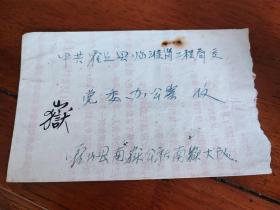 中共霍邱县临淮岗工程局交
党委办公室 收
嶽
霍山县南嶽公社南嶽大队